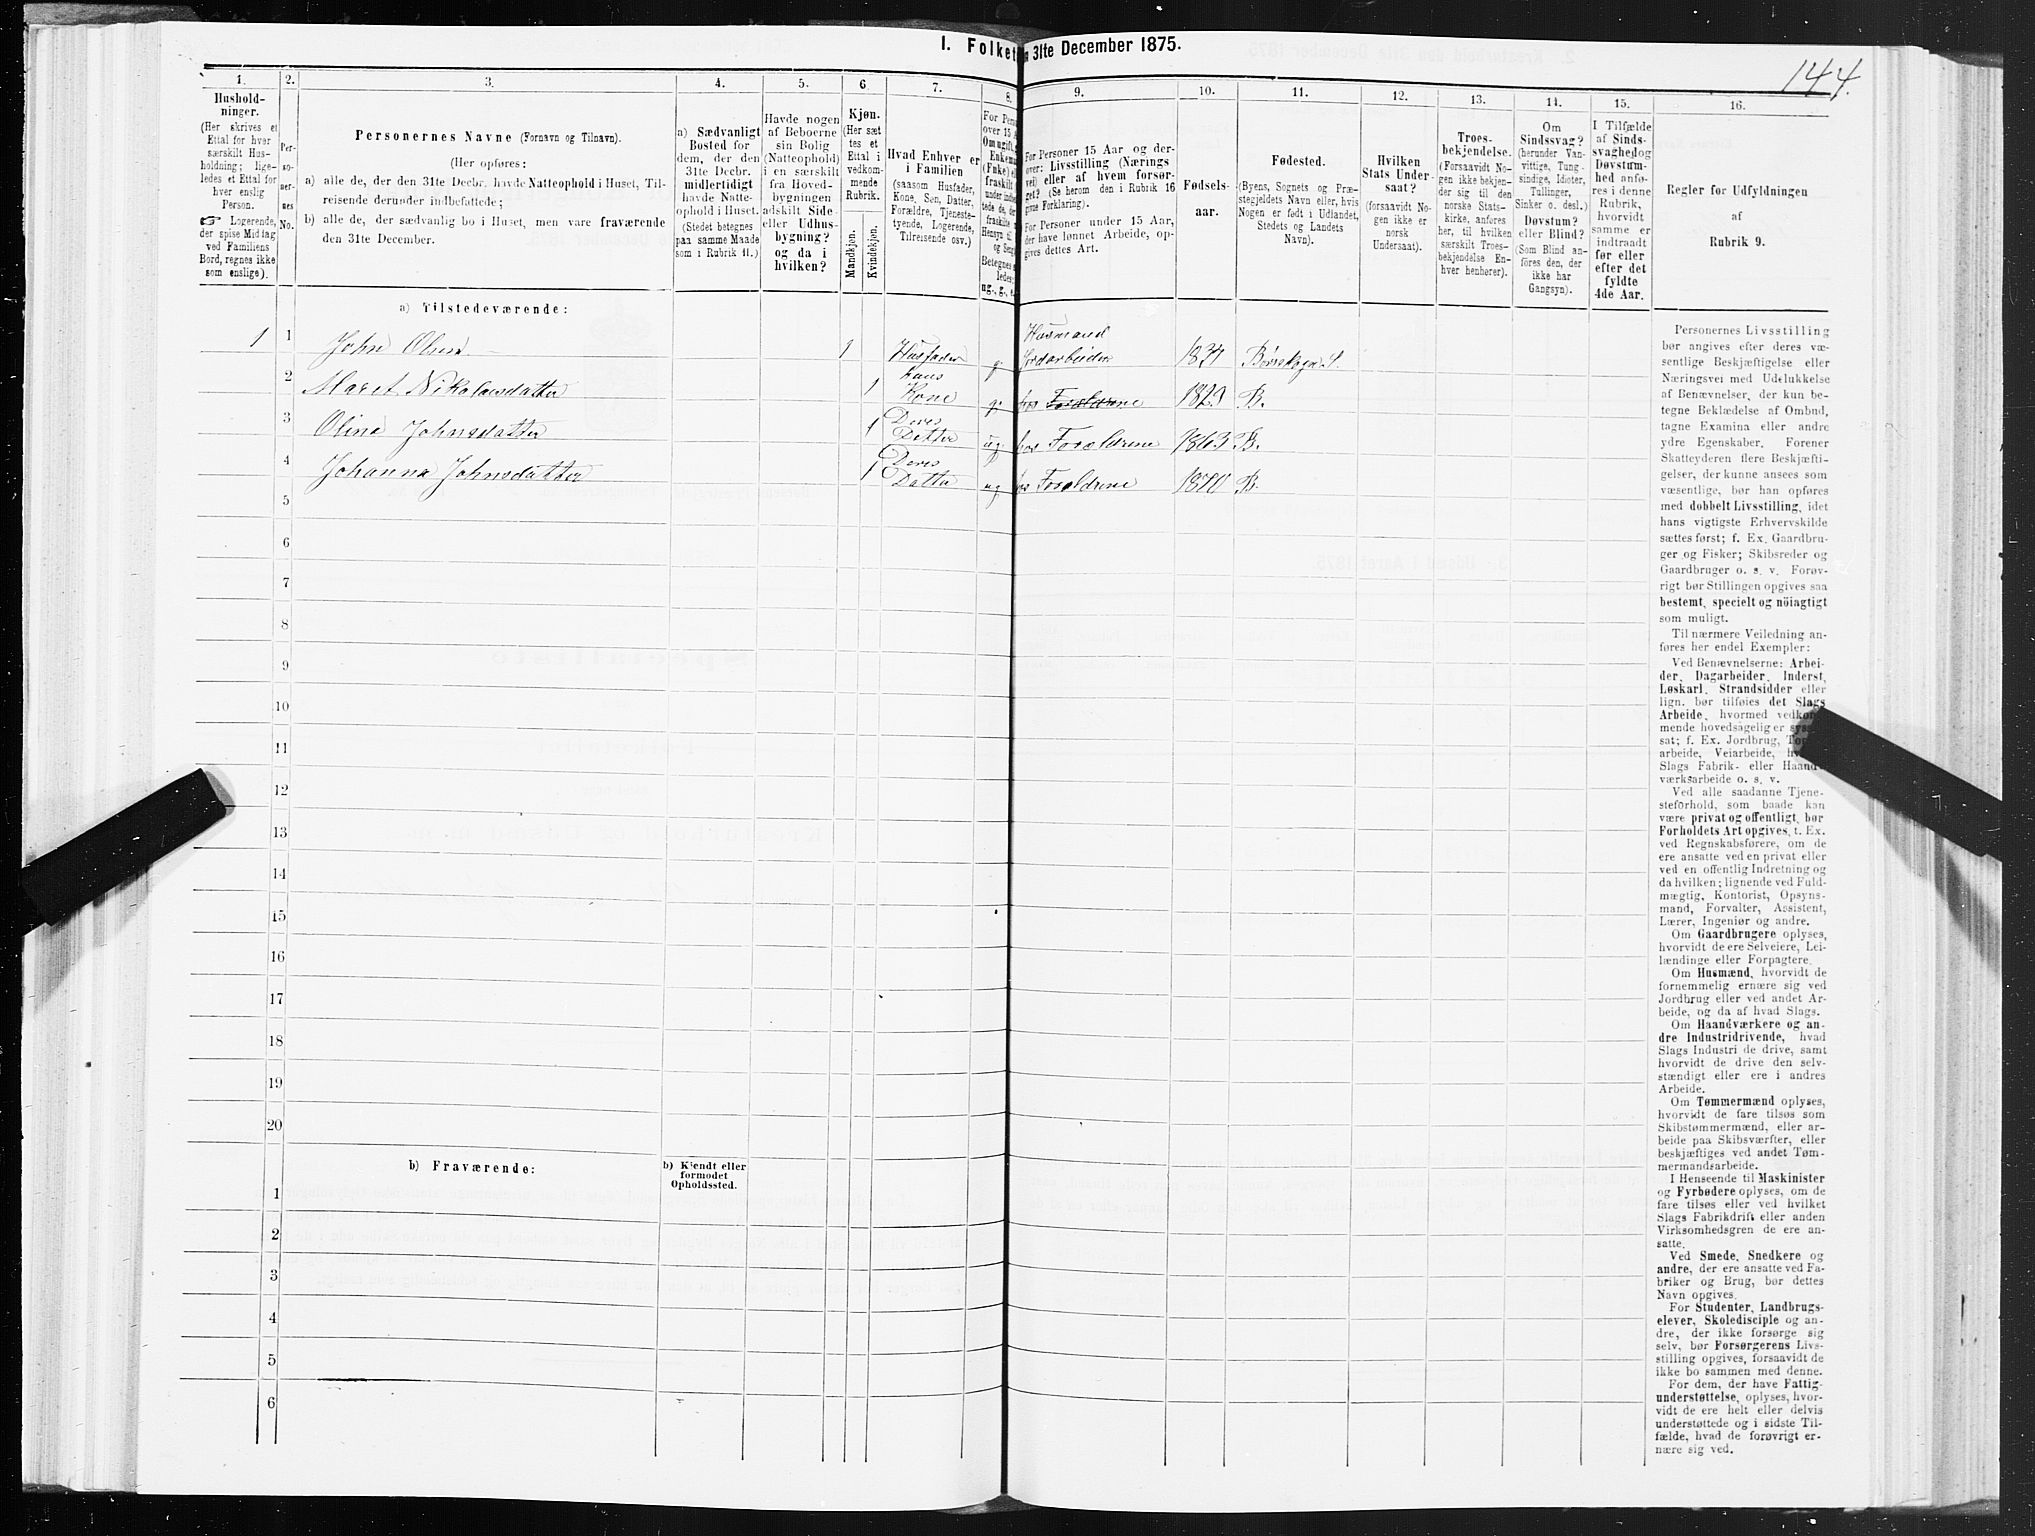 1. Folket
n 31te December 1875.
144.
1.
Hushold-
ninger.
(Her skrives et
Ettal for hver
særskilt Hus-
holdning; lige-
ledes et Ettal for
hver enslig
Person.
☞ Logerende,
der spise Middag
ved Familiens
Bord, regnes ikke
som enslige).
2.
Per-
so-
ner-
nes
No.
3.
Personernes Navne (Fornavn og Tilnavn).
(Her opføres:
a) alle de, der den 31te Decbr. havde Natteophold i Huset, Til-
reisende derunder indbefattede;
b) alle de, der sædvanlig bo i Huset, men vare fraværende
den 31te December.
4.
a) Sædvanligt
Bosted for
dem, der den
31te Decbr.
midlertidigt
havde Natte-
ophold i Huset.
(Stedet betegnes
paa samme Maade
som i Rubrik 11.)
5.
Havde nogen
af Beboerne
sin Bolig
(Natteophold)
i en særskilt
fra Hoved-
bygningen
adskilt Side-
eller Udhus-
bygning?
og da i
hvilken?
6.
Kjøn.
(Her sæt
tes et
Ettal i
vedkom-
mende
Rubrik.
Mandkjøn.
Kvindekjøn.
7.
Hvad Enhver er
i Familien
(saasom Husfader,
Kone, Søn, Datter,
Forældre, Tjeneste-
tyende, Logerende,
Tilreisende osv.)
8.
For Pers
over 15 A
Om ugift,
Enkema
(Fnke) el
fraskilt
ug., g., e.
9.
For Personer 15 Aar og der-
over: Livsstilling (Nærings
vei) eller af hvem forsør-
get? (Se herom den i Rubrik 16
givne Forklaring).
For Personer under 15 Aar,
der have lønnet Arbeide, op-
gives dettes Art.
10.
Fødsels-
aar.
11.
Fødested.
(Byens, Sognets og Præ-
stegjeldets Navn eller, hvis
Nogen er født i Udlandet,
Stedets og Landets
Navn).
12.
Hvilken
Stats Under-
saat?
(forsaavidt No-
gen ikke er
norsk
Undersaat).
13.
Troes-
bekjendelse.
(Forsaavidt No-
gen ikke bekjen-
der sig til den
norske Stats-
kirke, anføres
her, til hvilken
særskilt Troes-
bekjendelse En-
hver henhører).
14.
Om
Sindssvag?
(herunder Van-
vittige, Tung-
sindige, Idioter,
Tullinger,
Sinker o. desl.)
Døvstum?
eller Blind?
(Som Blind an-
føres den, der
ikke har
Gangsyn).
15.
I Tilfælde
af Sinds-
svaghed og
Døvstum-
hed anfø-
res i denne
Rubrik,
hvorvidt
samme er
indtraadt
før eller
efter det
fyldte
4de Aar.
16.
Regler for Udfyldningen
af
Rubrik 9.
a) Tilstedeværende:
1 1 John Olsen 1 Husfader g. Husmand Jordarbeider Børsskogn S.
2 Maret Nikolaisdatter 1 hans Kone g. hos Forældrene 1829 B.
3 Olina Johnsdatter 1 Deres Datter ug hos Forældrene 1863 B.
4 Johanna Johnsdatter 1 Deres Datter ug hos Forældrene 1870 B.
5
6
7
8
9
10
11
12
13
14
15
16
17
18
19
20
b) Fraværende:
b) Kjendt eller
formodet
Opholdssted.
1
2
3
4
5
6
Personernes Livsstilling
bør angives efter deres væ-
sentlige Beskjæftigelse eller
Næringsvei med Udelukkelse
af Benævnelser, der kun be-
tegne Beklædelse af Ombud,
tagne Examina eller andre
ydre Egenskaber. Forener
Skatteyderen flere Beskjæfti-
gelser, der kunne ansees som
væsentlige, bør han opføres
med dobbelt Livsstilling, idet
hans vigtigste Erhvervskilde
sættes først; f. Ex. Gaardbru-
ger og Fisker; Skibsreder og
Gaardbruger o. s. v. Forøv-
rigt bør Stillingen opgives saa
bestemt, specielt og nöiagtigt
som muligt.
Til nærmere Veiledning an-
føres her endel Exempler:
Ved Benævnelserne: Arbei-
der, Dagarbeider, Inderst,
Løskarl, Strandsidder eller
lign. bør tilføies det Slags
Arbeide, hvormed vedkom-
mende hovedsagelig er syssel-
sat; f. Ex. Jordbrug,
arbeide, Veiarbeide,
Slags Fabrik- eller Haand-
værksarbeide o. s. v.
Ved alle saadanne Tjene-
steforhold, som baade kan
være privat og offentligt, bør
Forholdets Art opgives, t. Ex.
ved Regnskabsførere, om de
ere ansatte ved en privat eller
ved en offentlig Indretning og
da hvilken; lignende ved Fuld-
mægtig, Kontorist, Opsyns-
mand, Forvalter, Assistent,
Lærer, Ingeniør og andre.
Om Gaardbrugere oplyses,
hvorvidt de ere Selveiere, Lei-
lændinge eller Forpagtere.
Om Husmænd, hvorvidt de
fornemmelig ernære sig ved
Jordbrug eller ved andet Ar-
beide, og da af hvad Slags.
Om Haandværkere og an-
dre Industridrivende, hvad
Slags Industri de drive, samt
hvorvidt de drive den selv-
stændigt eller ere i andres
Arbeide.
Om Tømmermænd oplyses,
hvorvidt de fare tilsøs som
Skibstømmermænd, eller ar-
beide paa Skibsværfter, eller
beskjæftiges ved andet Tøm-
mermandsarbeide.
I Henseende til Maskinister
og Fyrbødere oplyses, om de
fare tilsøs eller ved hvilket
Slags Fabrikdrift eller anden
Virksomhedsgren de ere an-
satte.
Ved Smede, Snedkere og
andre, der ere ansatte ved Fa-
briker og Brug, bør dettes
Navn opgives.
For Studenter, Landbrugs-
elever, Skoledisciple og an-
dre, der ikke forsørge sig
selv, bør Forsørgerens Livs-
stilling opgives, forsaavidt de
ikke bo sammen med denne.
For dem, der have Fattig-
understøttelse, oplyses, hvor-
vidt de ere helt eller delvis
understøttede og i sidste Til-
fælde, hvad de forøvrigt er-
nære sig ved.